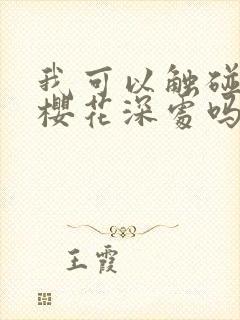 我可以触碰
樱花深处吗
王霞